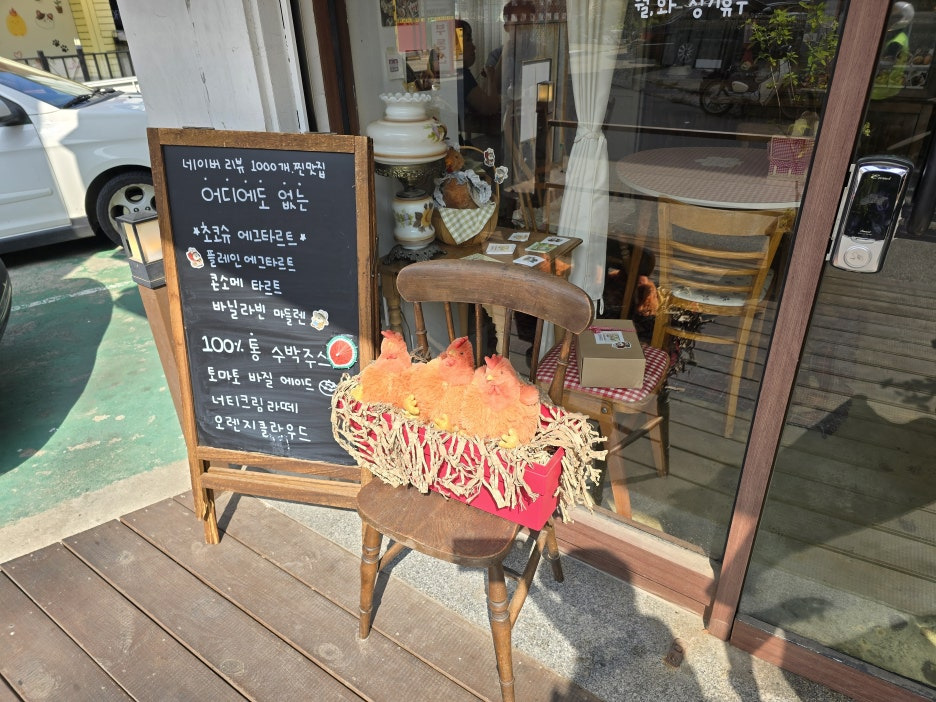 월,화 정기휴무
네이버 리뷰 1000개 찐맛집
어디에도 없는
*초코슈 에그타르트*
플레인 에그타르트
콘소메 타르트
바닐라빈 마들렌
100% 통 수박주스
토마토 바질 에이드
너티크림라떼
오렌지클라우드